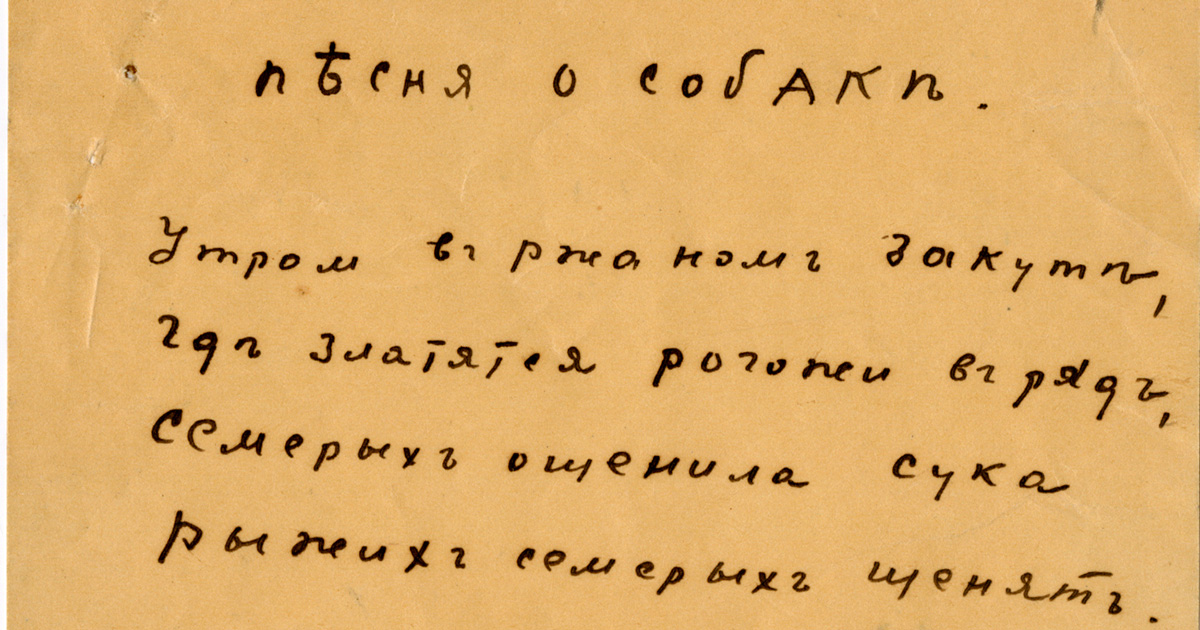 пѣсня о собакѣ.
Утром въ ржаномъ закутѣ,
гдѣ златятся рогожи въ рядъ,
Семерыхъ ощенила сука
Рыжихъ семерыхъ щенятъ.